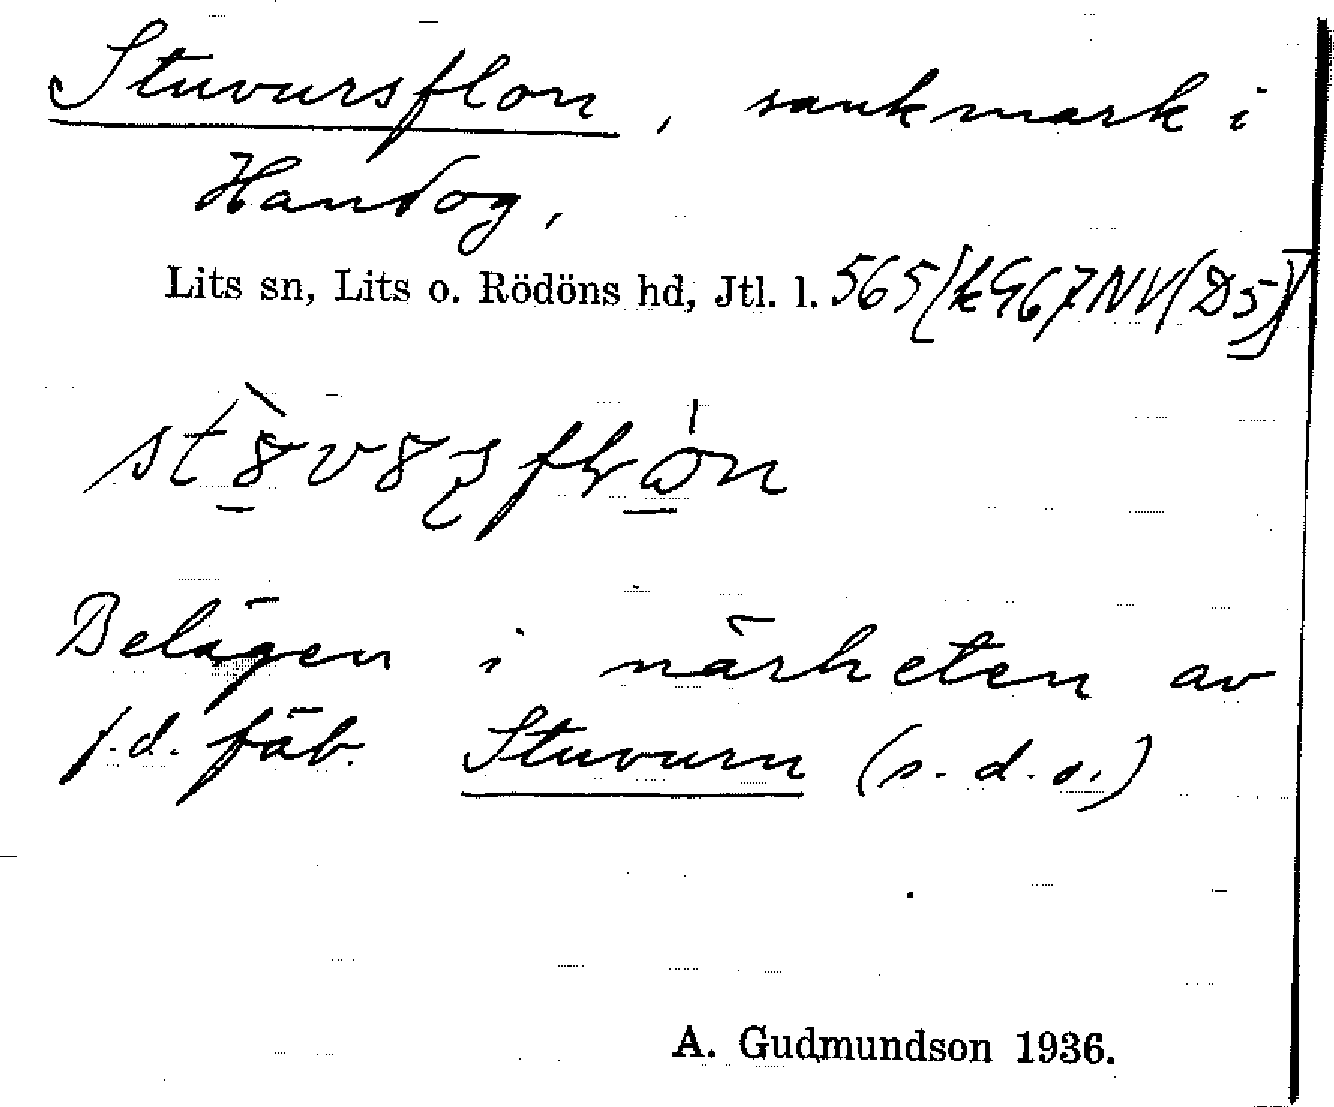 Stuvursflon, sankmark i
Handog,
Lits sn, Lits o. Rödöns hd, Jtl. l. 565
Belägen i närheten av
f.d. fäb. Stuvurn (s.d.o.)
A. Gudmundson 1936.